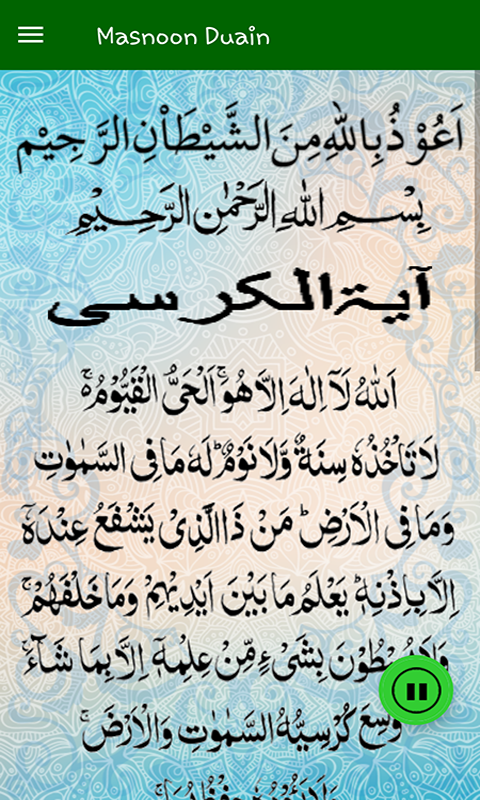 Masnoon Duain
اَعُوْذُ بِاللهِ مِنَ الشَّيْطٰنِ الرَّجِيْمِ
بِسْمِ اللهِ الرَّحْمٰنِ الرَّحِيْمِ
آیۃ الکرسی
اَللهُ لَاۤ اِلٰهَ اِلَّا هُوَۚ اَلْحَيُّ الْقَيُّوْمُ ۚ
لَا تَاْخُذُهٗ سِنَةٌ وَّلَا نَوْمٌؕ لَهٗ مَا فِى السَّمٰوٰتِ
وَمَا فِى الْاَرْضِؕ مَنْ ذَا الَّذِىْ يَشْفَعُ عِنْدَهٗۤ
اِلَّا بِاِذْنِهٖؕ يَعْلَمُ مَا بَيْنَ اَيْدِيْهِمْ وَمَا خَلْفَهُمْۚ
وَلَا يُحِيْطُوْنَ بِشَىْءٍ مِّنْ عِلْمِهٖۤ اِلَّا بِمَا شَآءَۚ
وَسِعَ كُرْسِيُّهُ السَّمٰوٰتِ وَالْاَرْضَۚ